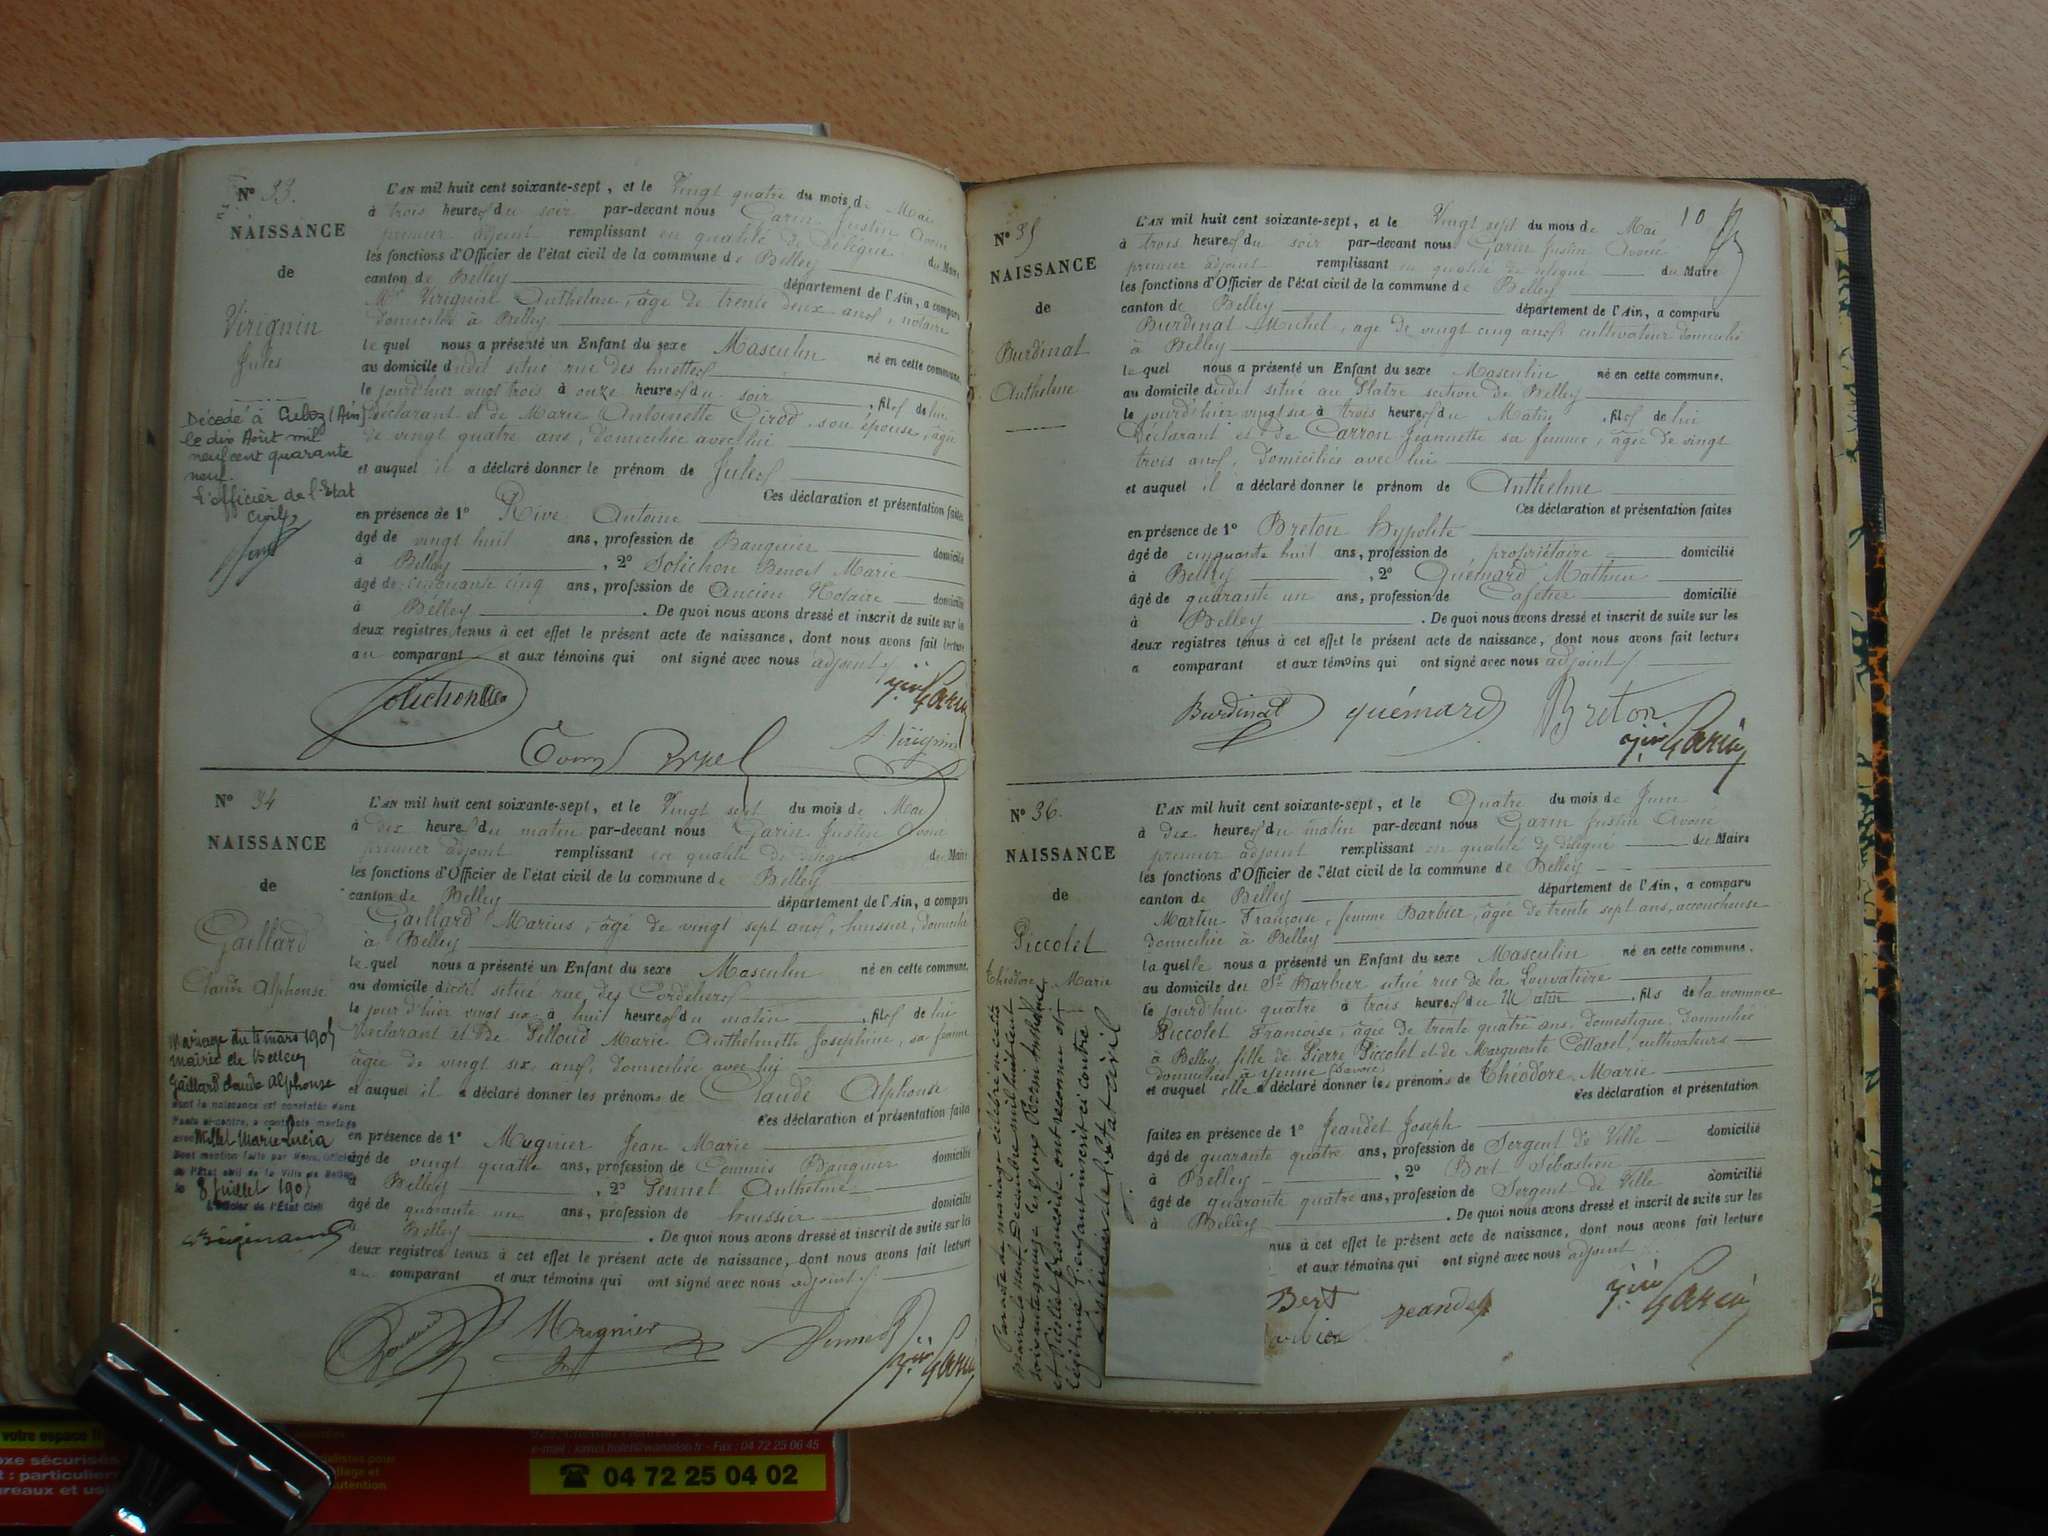 N° 33.
NAISSANCE
de
Virignin
Jules
Décédé à Culoz (Ain)
le dix Août mil
neuf cent quarante
neuf.
L'officier de l'Etat
Civil,
L'AN mil huit cent soixante-sept, et le Vingt quatre du mois de Mai
à trois heures du soir par-devant nous Garin Justin Avoué
premier adjoint remplissant en qualité de délégué du Maire
les fonctions d'Officier de l'état civil de la commune de Belley
canton de Belley département de l'Ain, a comparu
Mr Virignin Anthelme, âgé de trente deux ans, notaire
domicilié à Belley
le quel nous a présenté un Enfant du sexe Masculin né en cette commune,
au domicile dudit situé rue des
le jourd'hier vingt trois à onze heures du soir, fils de lui
déclarant et de Marie Antoinette Cirod son épouse, âgée
de vingt quatre ans, domiciliée avec lui
et auquel il a déclaré donner le prénom de Jules
Ces déclaration et présentation faites
en présence de 1° Rive Antoine
âgé de vingt huit ans, profession de Banquier domicilié
à Belley, 2° Solichon Benoit Marie
âgé de cinquante cinq ans, profession de Ancien Notaire domicilié
à Belley. De quoi nous avons dressé et inscrit de suite sur les
deux registres tenus à cet effet le présent acte de naissance, dont nous avons fait lecture
au comparant et aux témoins qui ont signé avec nous adjoint
Solichon
Garin
A Virignin
N° 34
NAISSANCE
de
Gaillard
Claude Alphonse
Mariage du 11 mars 1905
mairie de Belley
Gaillard Claude Alphonse
dont la naissance est constatée dans
l'acte ci-contre, a contracté mariage
avec Millet Marie Lucia
Dont mention faite par Nous, Officier
de l'Etat civil de la Ville de Belley
le 8 Juillet 1905
L'Officier de l'Etat Civil
L'AN mil huit cent soixante-sept, et le Vingt sept du mois de Mai
à dix heures du matin par-devant nous Garin Justin Avoué
premier adjoint remplissant en qualité de délégué du Maire
les fonctions d'Officier de l'état civil de la commune de Belley
canton de Belley département de l'Ain, a comparu
Gaillard Marius, âgé de vingt sept ans, huissier, domicilié
à Belley
le quel nous a présenté un Enfant du sexe Masculin né en cette commune,
au domicile dudit situé rue des Cordeliers
le jour d'hier vingt six à huit heures du matin, fils de lui
déclarant et de Pilloud Marie Anthelmette Josephine, sa femme
âgée de vingt six ans, domiciliée avec lui
et auquel il a déclaré donner les prénoms de Claude Alphonse
Ces déclaration et présentation faites
en présence de 1° Mugnier Jean Marie
âgé de vingt quatre ans, profession de Commis Banquier domicilié
à Belley, 2° Anthelme
âgé de quarante un ans, profession de huissier domicilié
à Belley. De quoi nous avons dressé et inscrit de suite sur les
deux registres tenus à cet effet le présent acte de naissance, dont nous avons fait lecture
au comparant et aux témoins qui ont signé avec nous adjoint
Mugnier
Garin
10
N° 35
NAISSANCE
de
Burdinat
Anthelme
L'AN mil huit cent soixante-sept, et le Vingt sept du mois de Mai
à trois heures du soir par-devant nous Garin Justin Avoué
premier adjoint remplissant en qualité de délégué du Maire
les fonctions d'Officier de l'état civil de la commune de Belley
canton de Belley département de l'Ain, a comparu
Burdinat Michel, âgé de vingt cinq ans, cultivateur domicilié
à Belley
le quel nous a présenté un Enfant du sexe Masculin né en cette commune.
au domicile dudit situé au Platre section de Belley
le jourd'hier vingt six à trois heures du Matin, fils de lui
Déclarant et de Carron Jeannette sa femme, âgée de vingt
trois ans, domiciliée avec lui
et auquel il a déclaré donner le prénom de Anthelme
Ces déclaration et présentation faites
en présence de 1° Breton hypolite
âgé de cinquante huit ans, profession de propriétaire domicilié
à Belley, 2° Quémard Mathieu
âgé de quarante un ans, profession de Cafetier domicilié
à Belley. De quoi nous avons dressé et inscrit de suite sur les
deux registres tenus à cet effet le présent acte de naissance, dont nous avons fait lecture
a comparant et aux témoins qui ont signé avec nous adjoint
Burdinat quémard Breton
Garin
N° 36.
NAISSANCE
de
Piccolet
Théodore Marie
Par acte de mariage célébré en cette
mairie le neuf Décembre mil huit cent
soixante quinze les époux
et Picollet Françoise ont reconnu et
légitimé l'enfant inscrit ci contre
L'officier de l'état civil
L'AN mil huit cent soixante-sept, et le Quatre du mois de Juin
à dix heures du matin par-devant nous Garin Justin Avoué
premier adjoint remplissant en qualité de délégué du Maire
les fonctions d'Officier de l'état civil de la commune de Belley
canton de Belley département de l'Ain, a comparu
Martin Françoise, femme Barbier, âgée de trente sept ans, accoucheuse
domiciliée à Belley
la quelle nous a présenté un Enfant du sexe Masculin né en cette commune.
au domicile du Sr Barbier situé rue de la Louvatière
le jourd'hui quatre à trois heures du Matin, fils de la nommée
Piccolet Françoise, âgée de trente quatre ans, domestique, domiciliée
à Belley, fille de Pierre Piccolet et de Marguerite Cottarel, cultivateurs
domiciliés à Yenne (Savoie)
et auquel elle a déclaré donner les prénoms de Théodore Marie
Ces déclaration et présentation
faites en présence de 1° Jeandet Joseph
âgé de quarante quatre ans, profession de Sergent de Ville domicilié
à Belley, 2° Bert Sébastien
âgé de quarante quatre ans, profession de Sergent de Ville domicilié
à Belley. De quoi nous avons dressé et inscrit de suite sur les
nus à cet effet le présent acte de naissance, dont nous avons fait lecture
et aux témoins qui ont signé avec nous adjoint
Bert jeandet Garin
votre espace !!
oxe sécurisés
t : particuliers
ureaux et us
e-mail : xamot.hotel@wanadoo.fr - Fax : 04 72 25 06 45
04 72 25 04 02